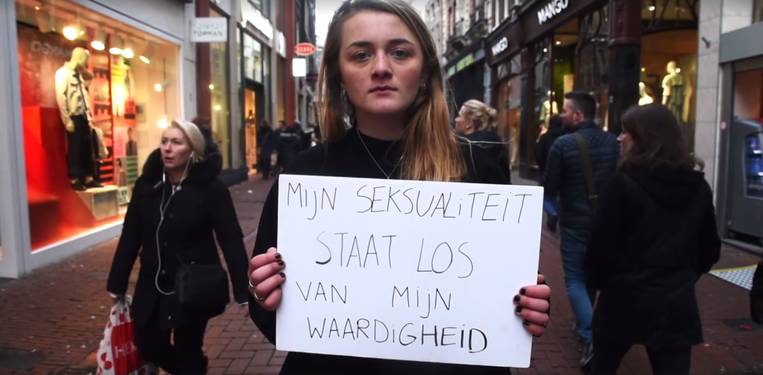 MANGO
MANGO
MIJN SEKSUALITEIT
STAAT LOS
VAN MIJN
WAARDIGHEID